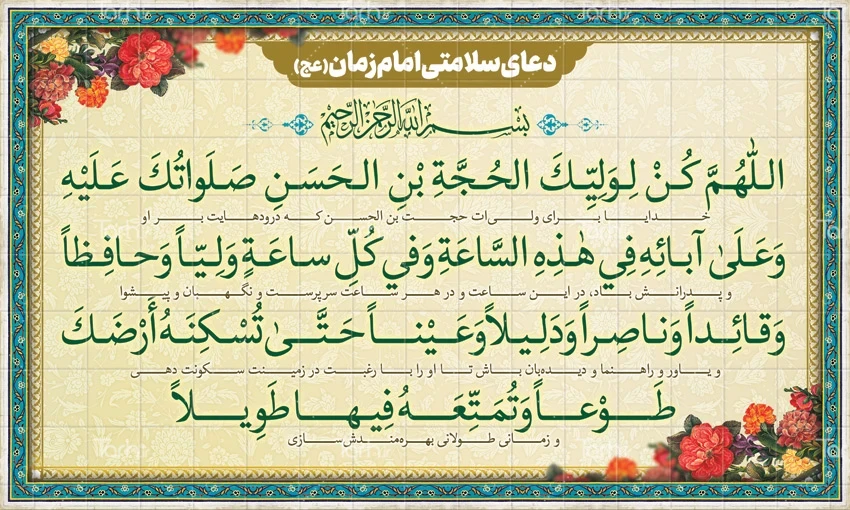 دعای سلامتی امام زمان (عج)
بسم الله الرحمن الرحیم
اللّٰهُمَّ كُنْ لِوَلِيِّكَ الحُجَّةِ بْنِ الحَسَنِ صَلَواتُكَ عَلَيْهِ
خدایا برای ولی‌ات حجت بن الحسن که درودهایت بر او
وَعَلىٰ آبائِهِ فِي هٰذِهِ السَّاعَةِ وَفي كُلِّ ساعَةٍ وَلِيّاً وَحافِظاً
و پدرانش باد، در این ساعت و در هر ساعت سرپرست و نگهبان و پیشوا
وَقائِداً وَناصِراً وَدَلِيلاً وَعَيْناً حَتَّىٰ تُسْكِنَهُ أَرْضَكَ
و یاور و راهنما و دیده‌بان باش تا او را با رغبت در زمینت سکونت دهی
طَوْعاً وَتُمَتِّعَهُ فِيها طَوِيلاً
و زمانی طولانی بهره‌مندش سازی